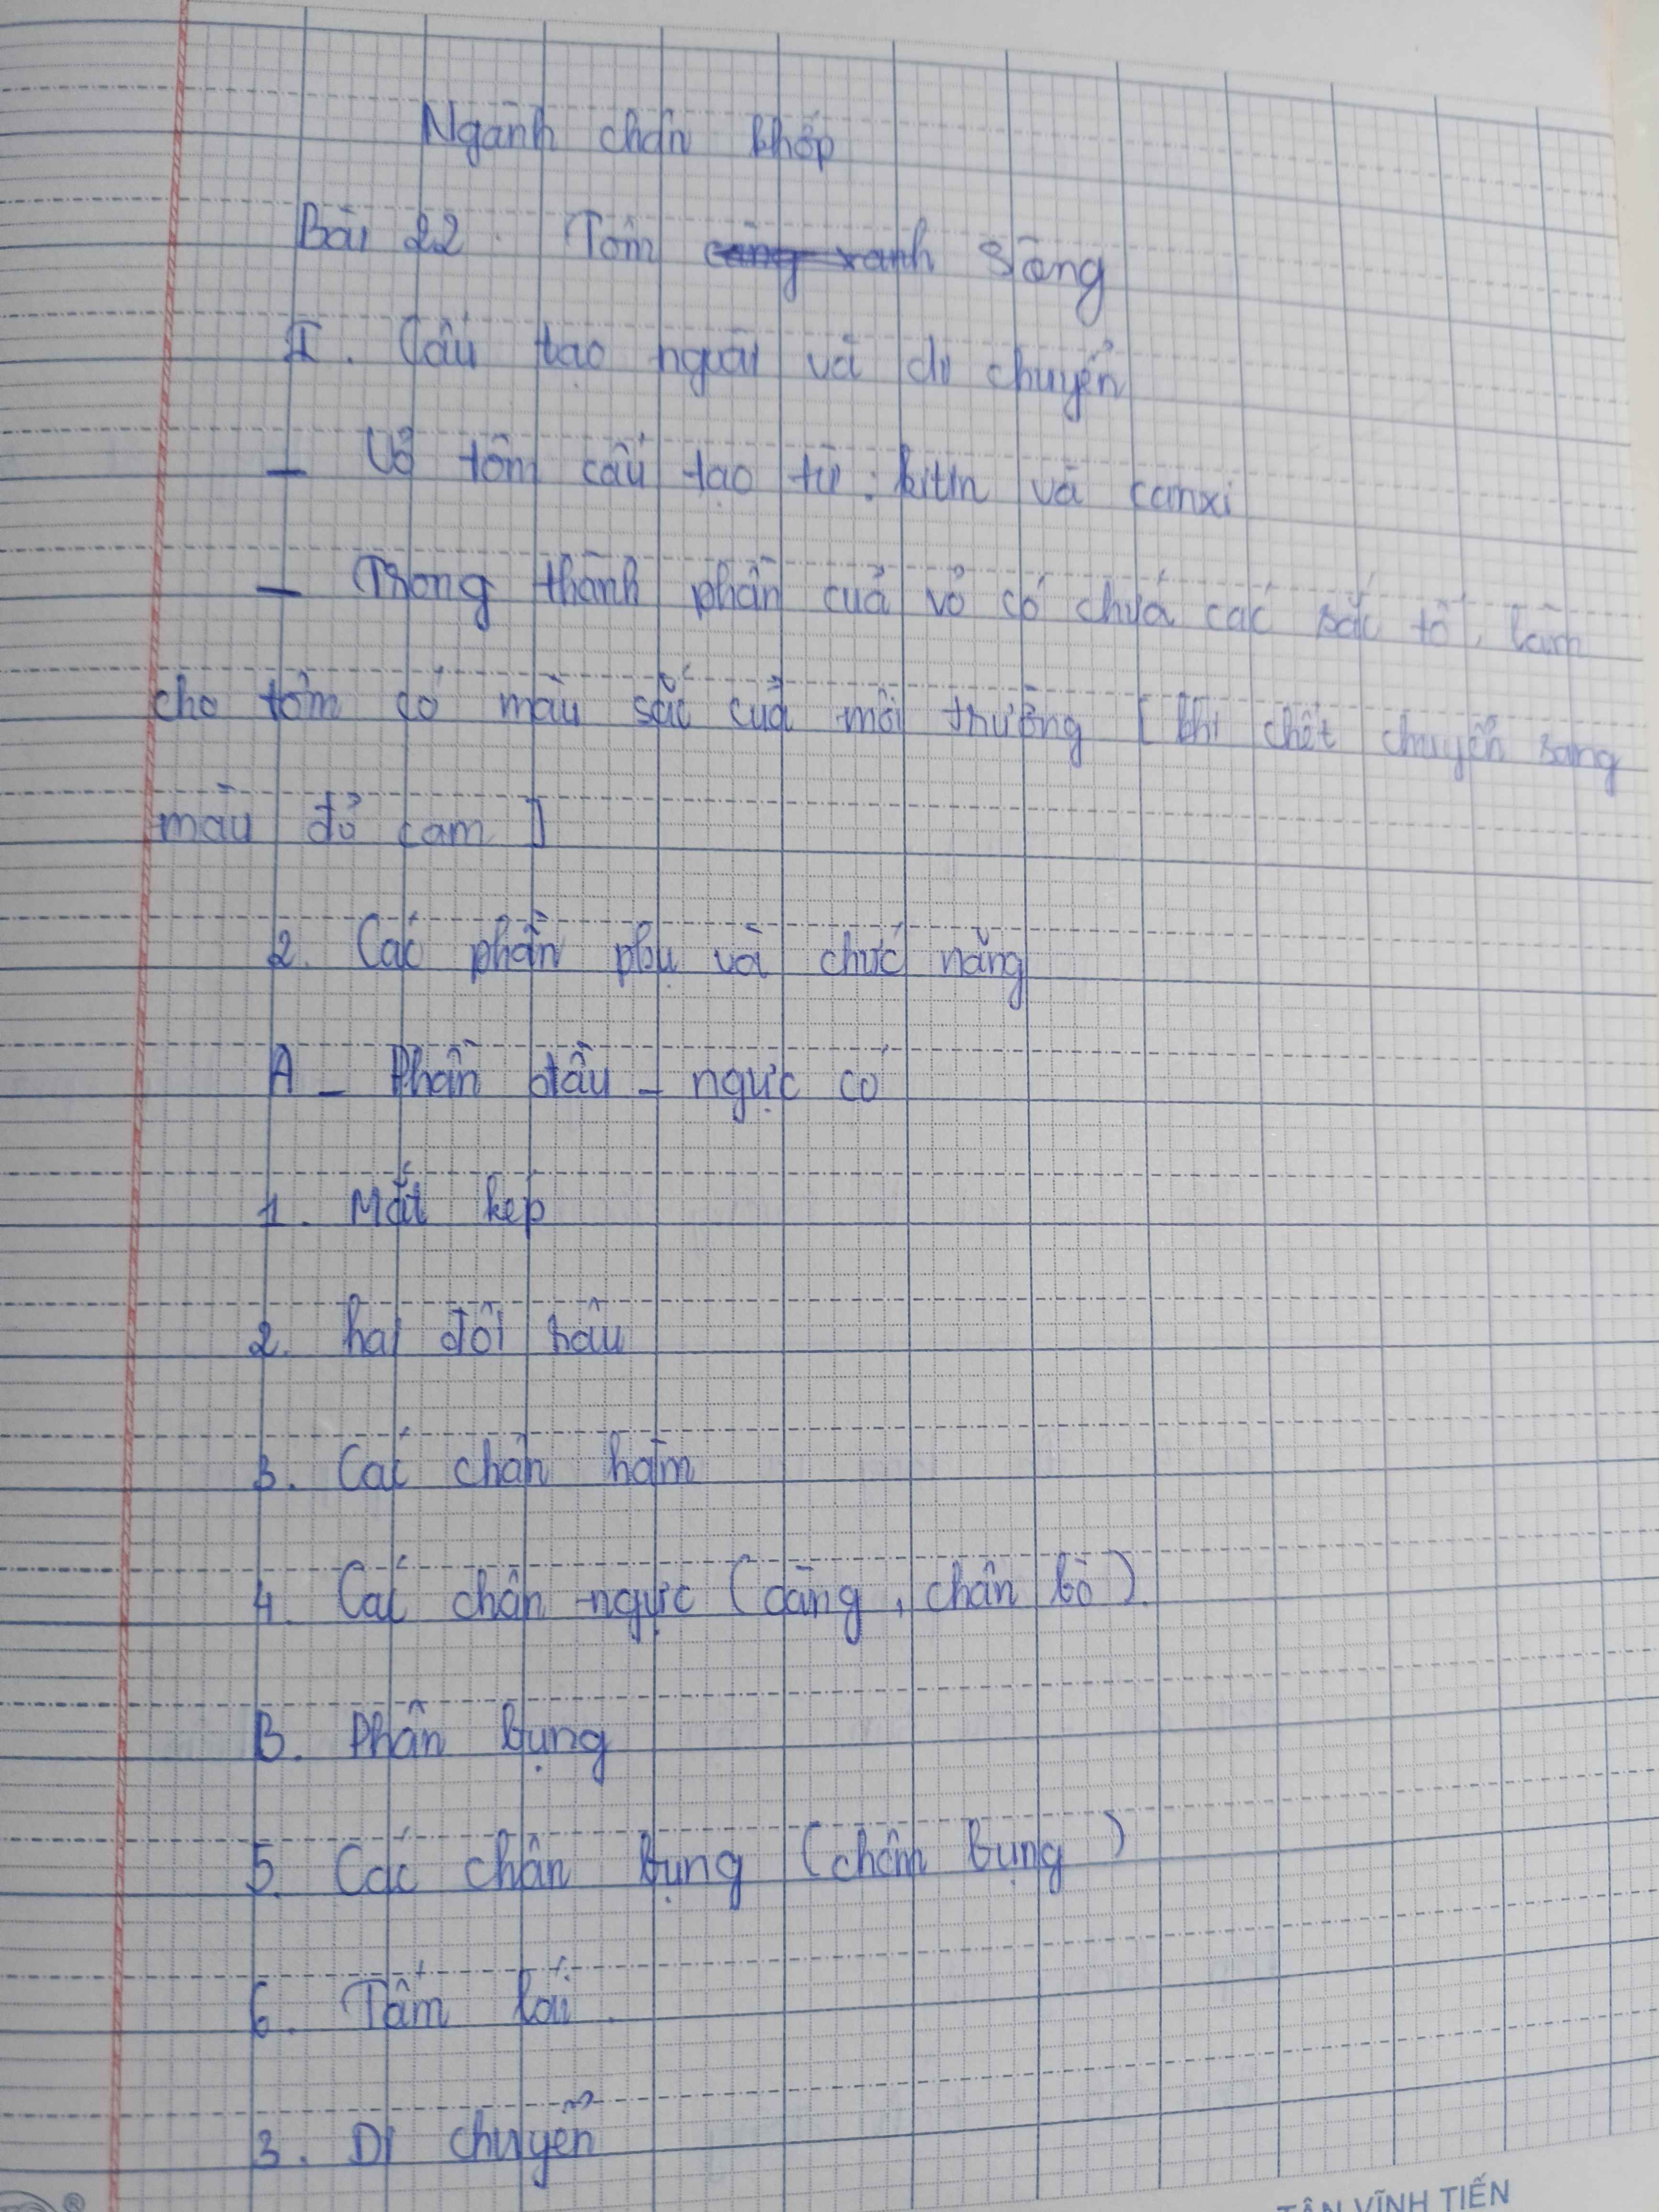 Ngành chân khớp
Bài 22. Tôm càng xanh sông
I. Cấu tạo ngoài và di chuyển
– Vỏ tôm cấu tạo từ: kitin và canxi
– Trong thành phần của vỏ có chứa các sắc tố, làm
cho tôm có màu sắc của môi trường [khi chết chuyển sang
màu đỏ cam]
2. Các phần phụ và chức năng
A – Phần đầu – ngực có
1. Mắt kép
2. hai đôi râu
3. Các chân hàm
4. Các chân ngực (càng, chân bò).
B. Phần bụng
5. Các chân bụng (chân bụng)
6. Tấm lái.
3. Di chuyển
TÂN VĨNH TIẾN
®